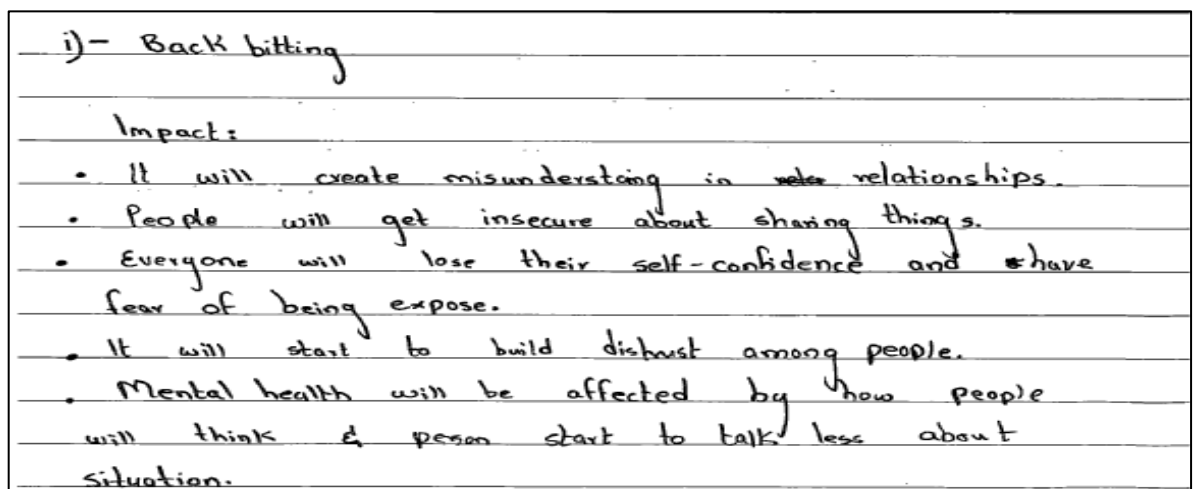 i)- Back bitting
Impact:
• It will create misunderstaing in relationships.
• People will get insecure about sharing things.
• Everyone will lose their self-confidence and have
fear of being expose.
• It will start to build distrust among people.
• Mental health will be affected by how people
will think & person start to talk less about
situation.